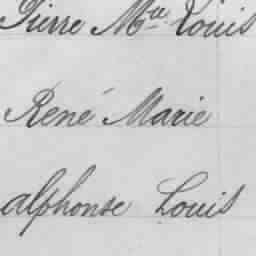 Pierre Mie Louis
René Marie
alphonse Louis